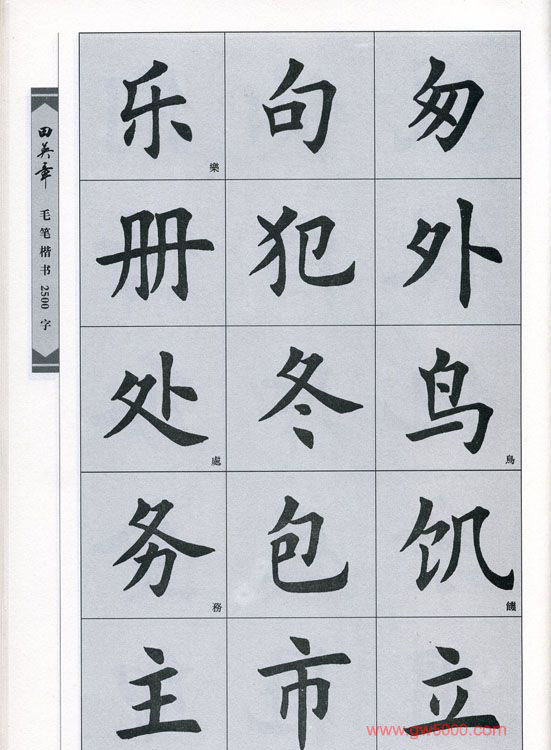 田英章
毛笔楷书2500字
乐 樂 句 匆
册 犯 外
处 處 冬 鸟 鳥
务 務 包 饥 饑
主 市 立
www.gw5000.com